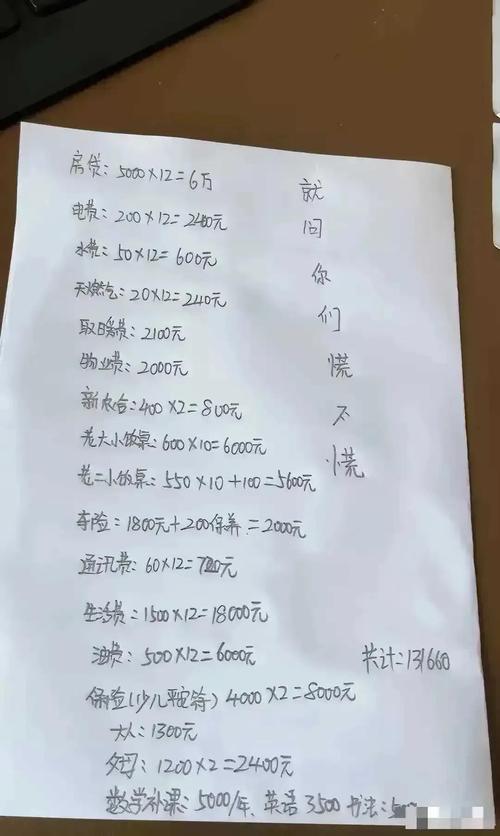 房贷：5000×12=6万
电费：200×12=2400元
水费：50×12=600元
天燃气：20×12=240元
取日爱费：2100元
物业费：2000元
新农合：400×2=800元
老大小饭桌：600×10=6000元
老二小饭桌：550×10+100=5600元
车险：1800元+200保养=2000元
通讯费：60×12=720元
生活费：1500×12=18000元
油费：500×12=6000元
保险(少儿平安符) 4000×2=8000元
大人：1300元
父母：1200×2=2400元
数学补课：5000/年、英语3500 书法：
就
问
你
们
慌
不
慌
共计：131660